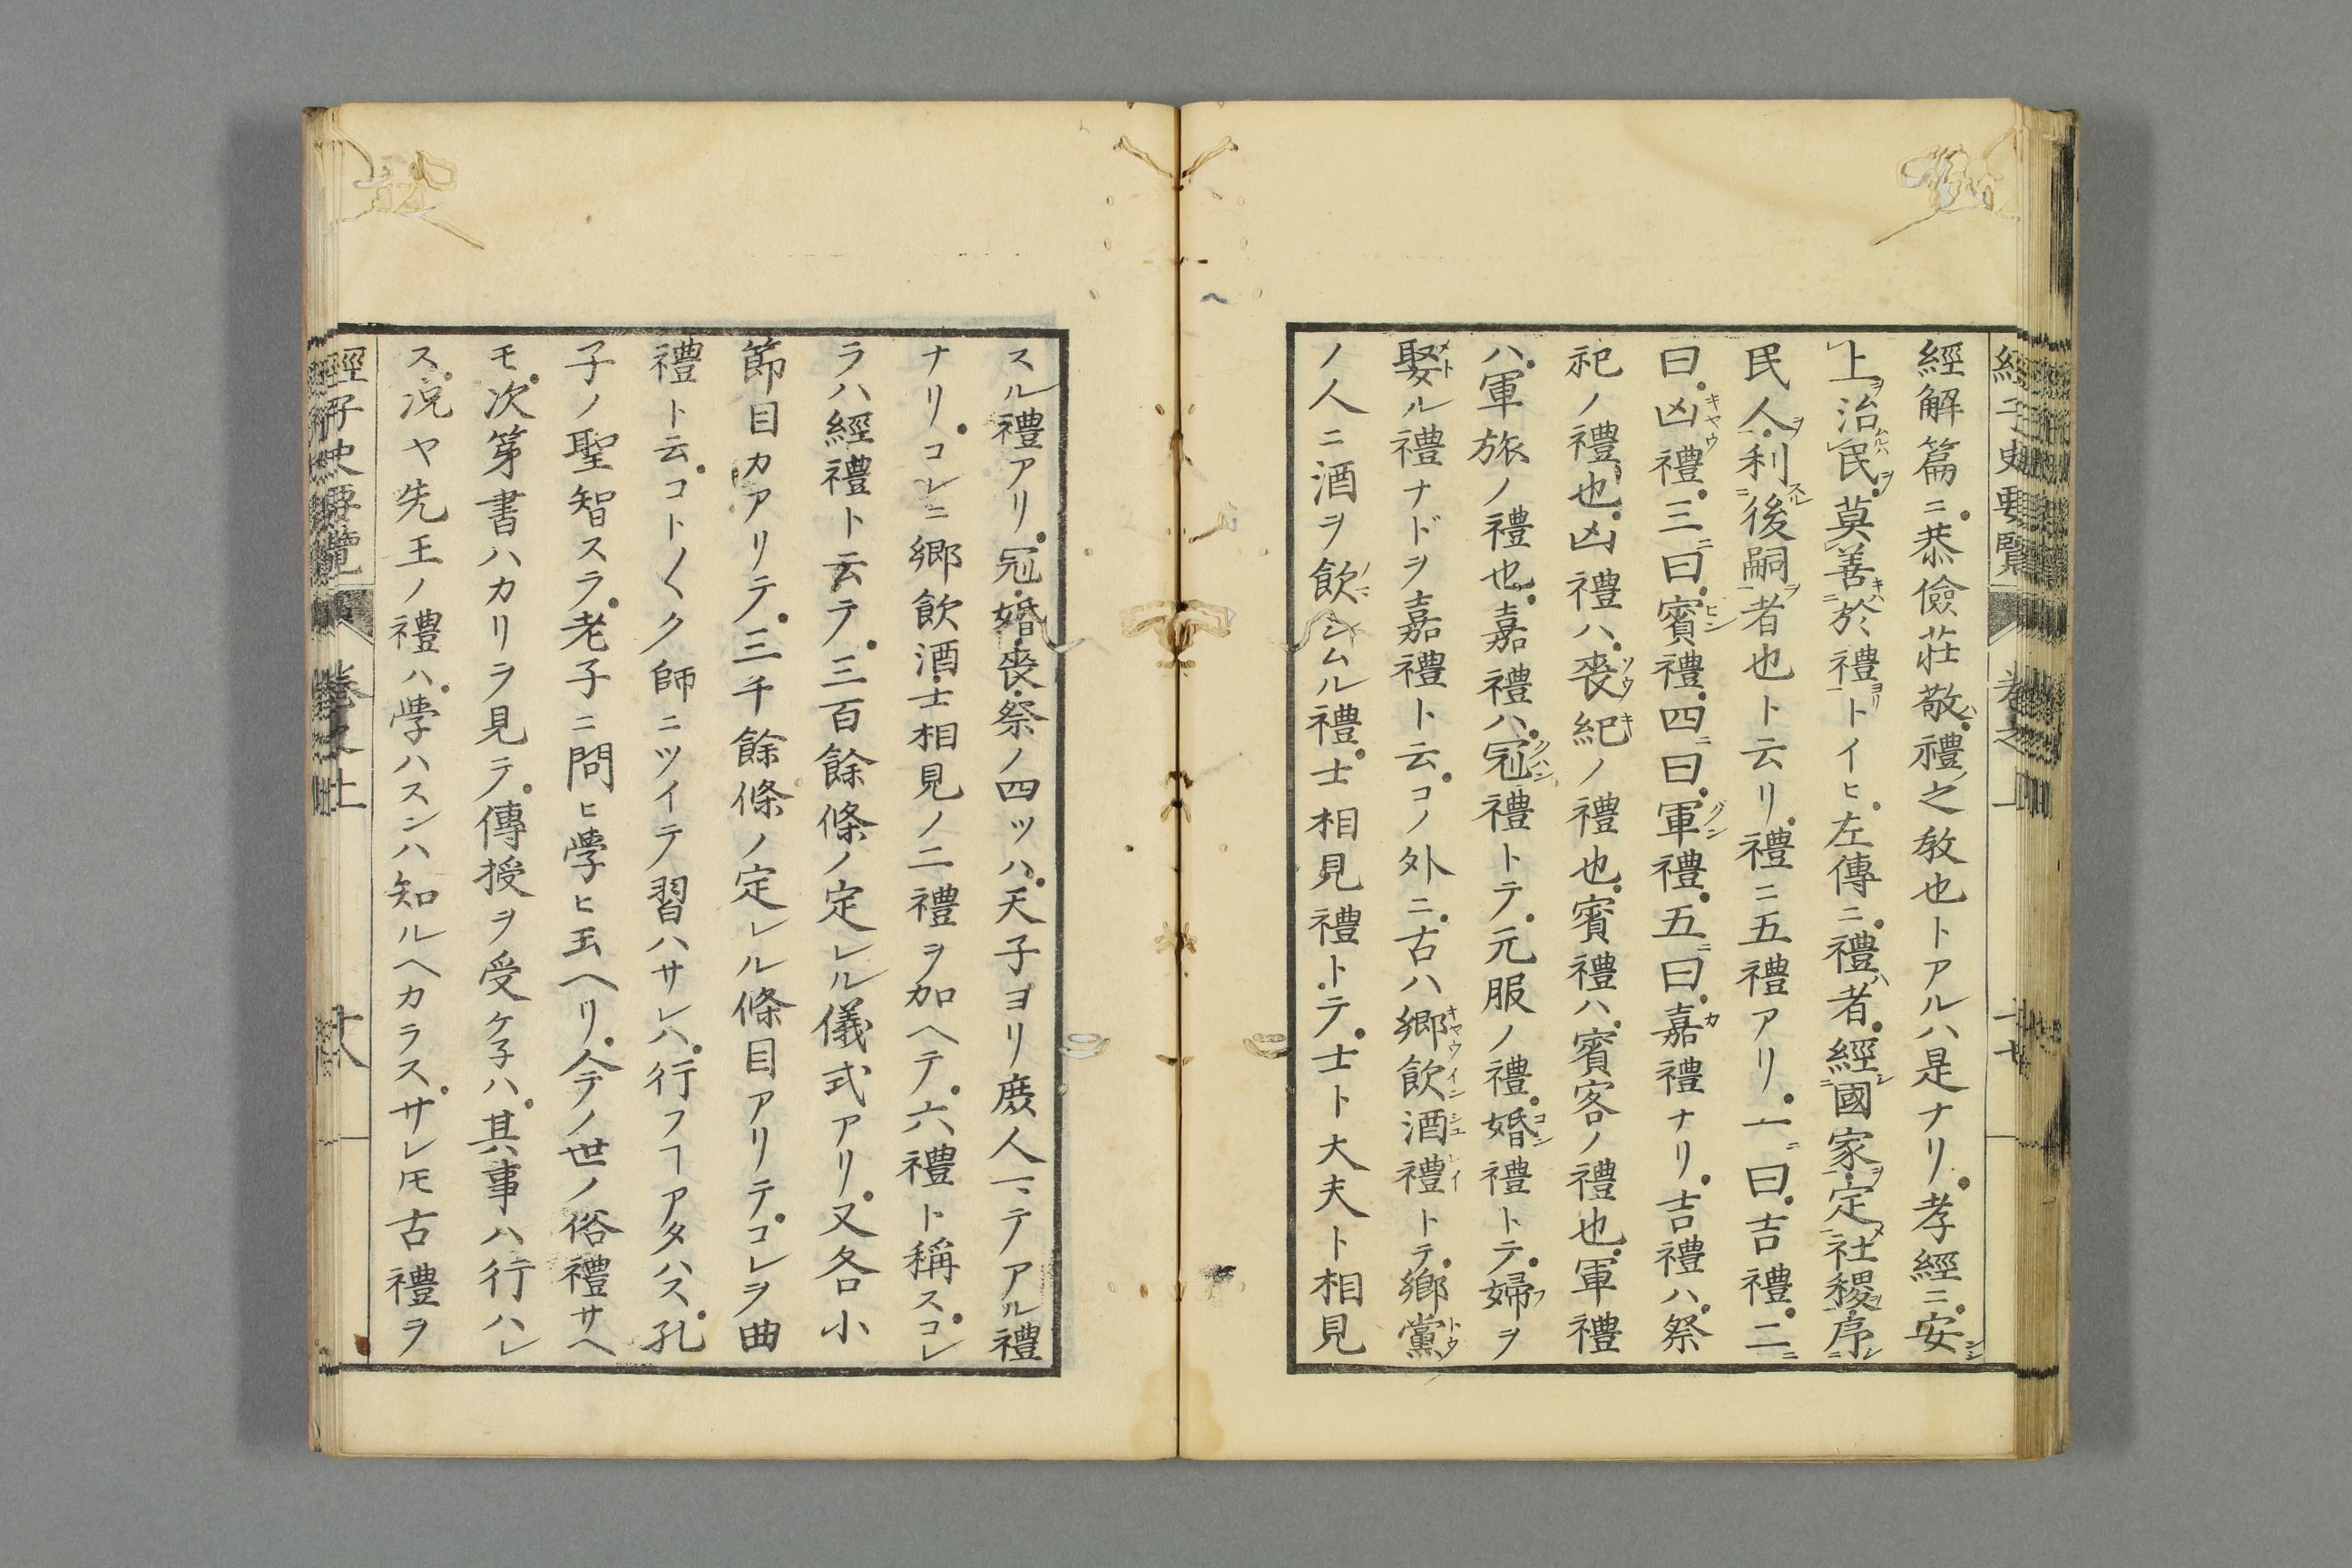 經子史要覽 卷之上 二十七
經解篇ニ恭儉莊敬ハ禮ノ之敎也トアルハ是ナリ孝經ニ安シシ
上ヲ治ムルハ民ヲ莫善キハ於禮ヨリトイヒ左傳ニ禮ハ者經シ國家ヲ定メ社稷ヲ序シ
民人ヲ利スル後嗣ヲ者也ト云リ禮ニ五禮アリ一ニ曰吉禮二ニ
曰凶キヤウ禮三ニ曰賓ヒン禮四ニ曰軍グン禮五ニ曰嘉カ禮ナリ吉禮ハ祭
祀ノ禮也凶禮ハ喪ソウ紀キノ禮也賓禮ハ賓客ノ禮也軍禮
ハ軍旅ノ禮也嘉禮ハ冠クハン禮トテ元服ノ禮婚コン禮トテ婦フヲ
娶メトル禮ナドヲ嘉禮ト云コノ外ニ古ハ郷キヤウ飮イン酒シユ禮レイトテ鄕黨トウ
ノ人ニ酒ヲ飮ノマシムル禮士相見禮トテ士ト大夫ト相見
スル禮アリ冠婚喪祭ノ四ツハ天子ヨリ庶人マテアル禮
ナリコレニ郷飮酒士相見ノ二禮ヲ加ヘテ六禮ト稱スコレ
ラハ經禮ト云テ三百餘條ノ定レル儀式アリ又各小
節目カアリテ三千餘條ノ定レル條目アリテコレヲ曲
禮ト云コト〱ク師ニツイテ習ハサレハ行フヿアタハス孔
子ノ聖智スラ老子ニ問ヒ學ヒ玉ヘリ今ノ世ノ俗禮サヘ
モ次第書ハカリヲ見テ傳授ヲ受ケ子ハ其事ハ行ハレ
ス况ヤ先王ノ禮ハ學ハスンハ知ルヘカラスサレ𪜈古禮ヲ
經子史要覽 卷之上